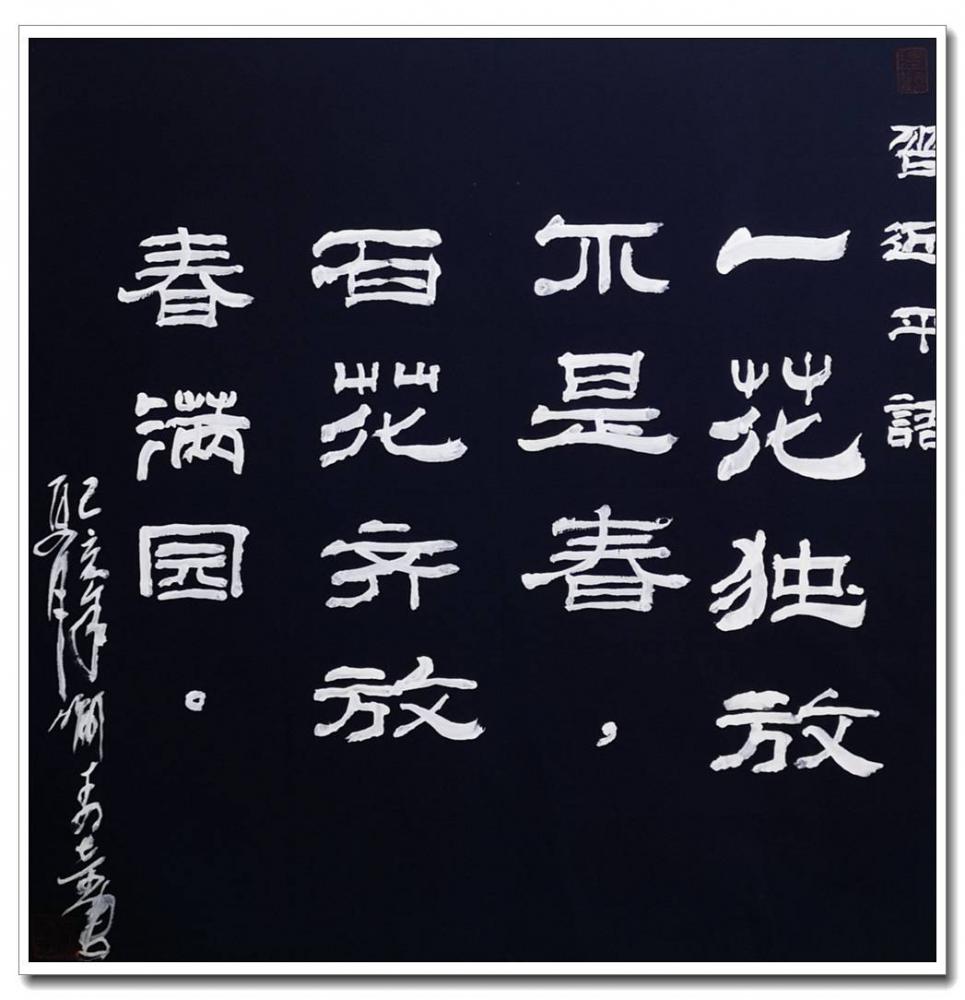 習近平語
一花独放
不是春，
百花齐放
春满园。
己亥年